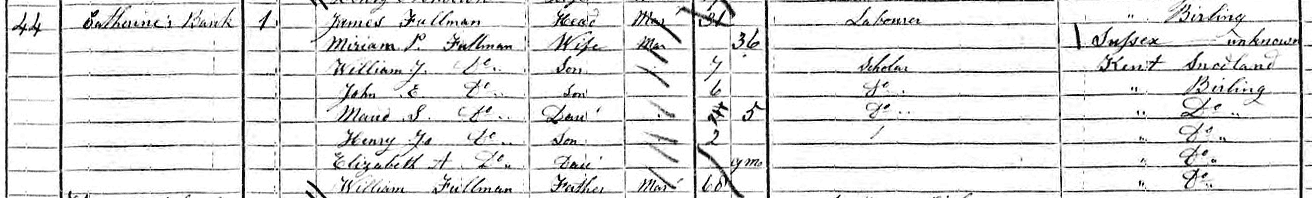 44 Catherine's Bank 1 James Fullman Head Mar 31 Labourer " Birling
Miriam P. Fullman Wife Mar 36 Sussex unknown
William J. Do Son 7 Scholar Kent Snodland
John E. Do Son 6 Do " Birling
Maud S. Do Dau' 5 Do " Do
Henry Do Son 2 " Do
Elizabeth A Do Dau' 9 mo " Do
William Fullman Father Mar' " Do